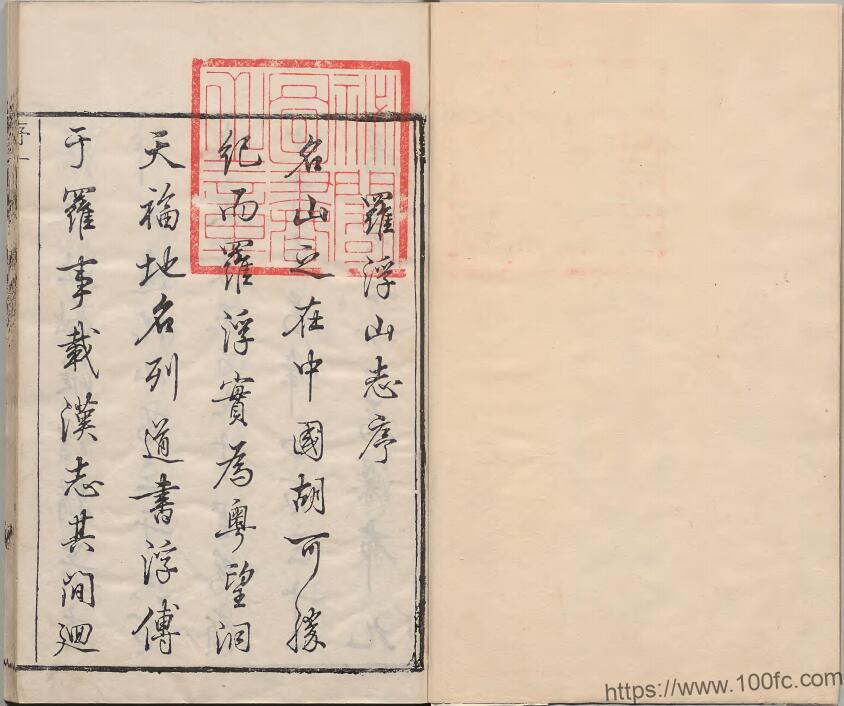 羅浮山志序
名山之在中國胡可勝
紀而羅浮實為粵望洞
天福地名列道書浮傅
于羅事載漢志其間廻
序一
https://www.100fc.com